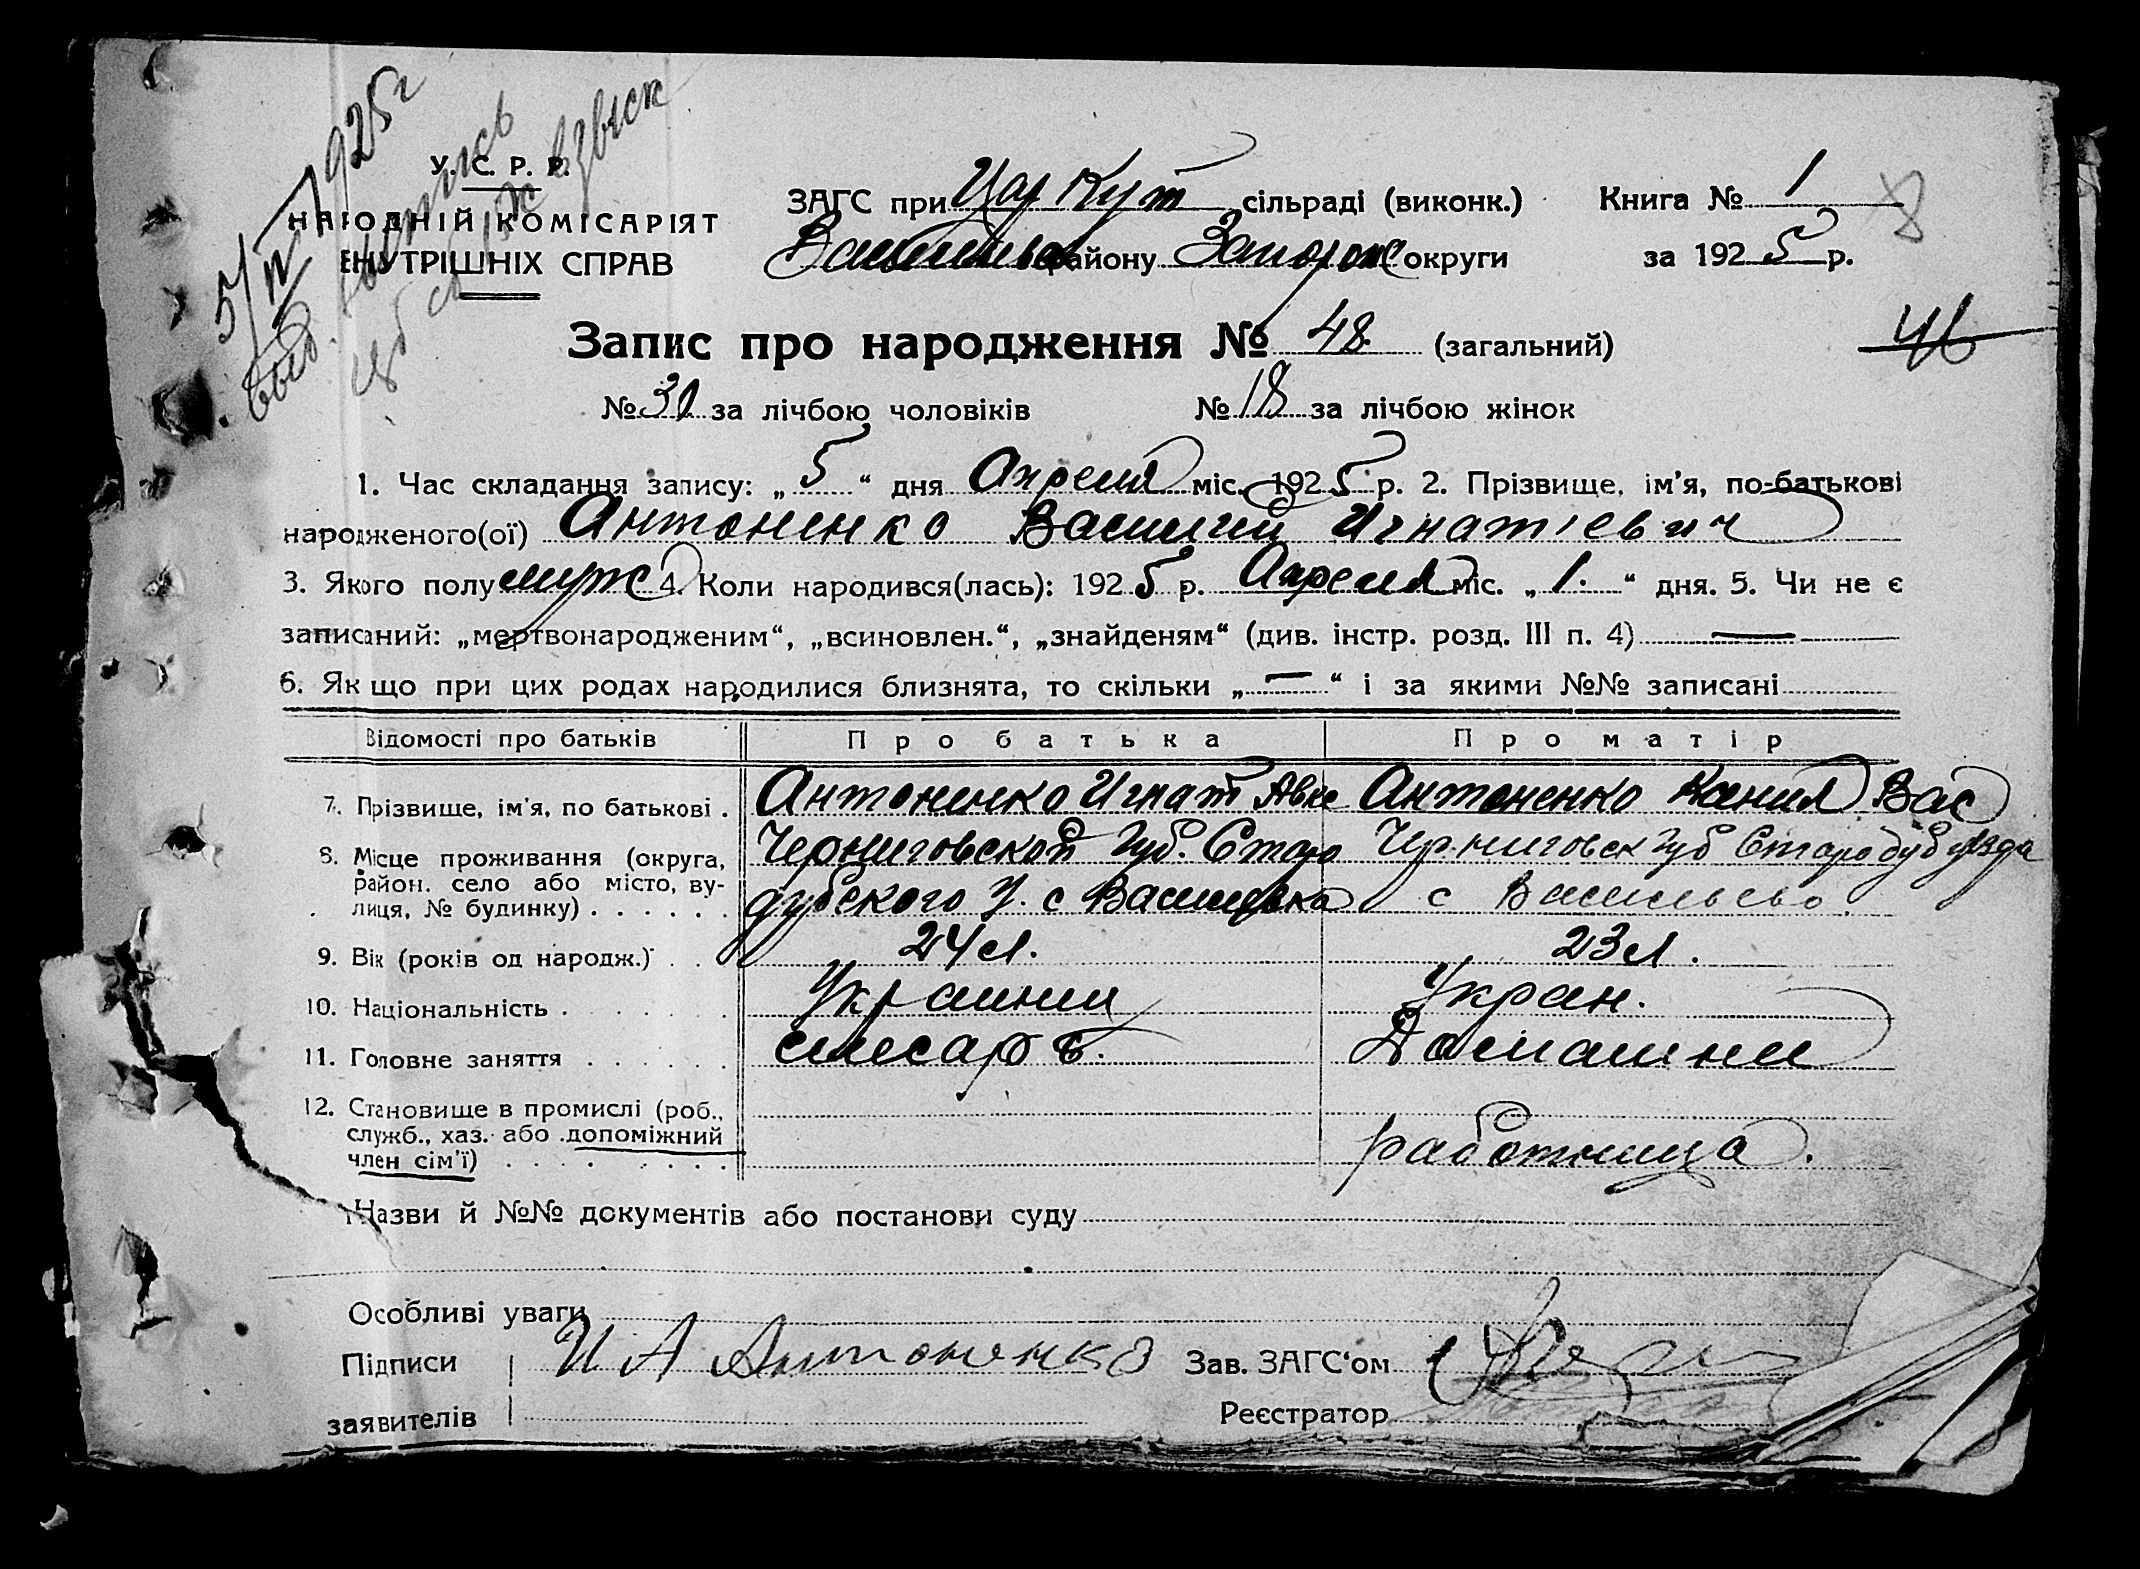 5/IV 1925 г
У. С. Р. Р.
НАРОДНІЙ КОМІСАРІЯТ
ВНУТРІШНІХ СПРАВ
ЗАГС при Цар Кут сільраді (виконк.) Книга № 1 8
району Запорож округи за 1925 р.
Запис про народження № 48. (загальний) 46
№ 30 за лічбою чоловіків № 18 за лічбою жінок
1. Час складання запису: „5“ дня Апреля міс. 1925 р. 2. Прізвище, ім'я, по-батькові
народженого(ої) Антоненко Василий Игнатіевич
3. Якого полу мужс 4. Коли народився(лась): 1925 р. Апреля міс. „1.“ дня. 5. Чи не є
записаний: „мертвонародженим“, „всиновлен.“, „знайденям“ (див. інстр. розд. III п. 4) —
6. Якщо при цих родах народилися близнята, то скільки „—“ і за якими №№ записані
Відомості про батьків Про батька Про матір
7. Прізвище, ім'я, по батькові . Антоненко Игнат Авкс Антоненко Вас
8. Місце проживання (округа, Черниговской Губ. Старо Черниговск Губ Стародуб уезда
район. село або місто, ву- дубского У. с Василевка с
лиця, № будинку) . . . . . .
9. Вік (років од народж.) . . . 24 л. 23 л.
10. Національність . . . . . . Украинец Украин.
11. Головне заняття . . . . . . слесарь. Домашнея
12. Становище в промислі (роб.,
служб., хаз. або допоміжний
член сім'ї) . . . . . . . . работница.
Назви й №№ документів або постанови суду
Особливі уваги
Підписи И А Антоненко Зав. ЗАГС'ом
заявителів Реєстратор